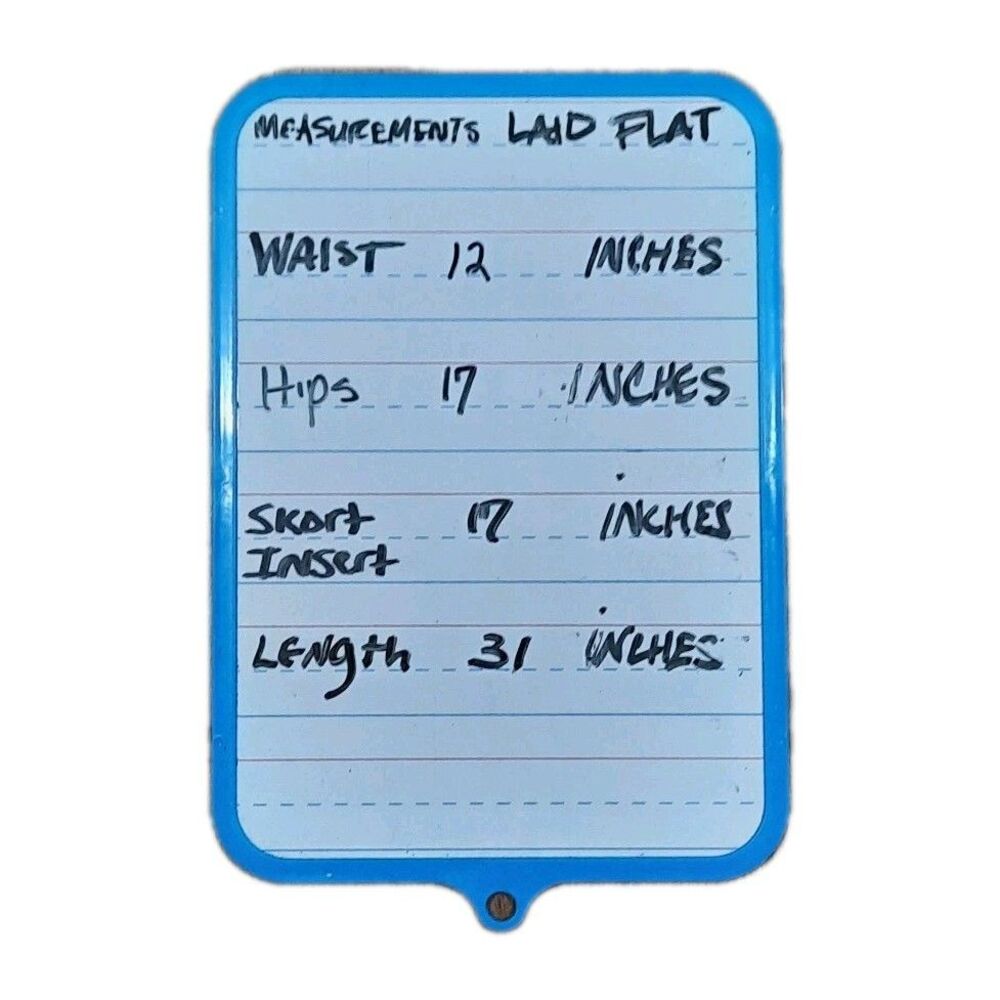 MEASUREMENTS LAID FLAT
WAIST 12 INCHES
Hips 17 INCHES
Skort 17 INCHES
Insert
LENgth 31 INCHES